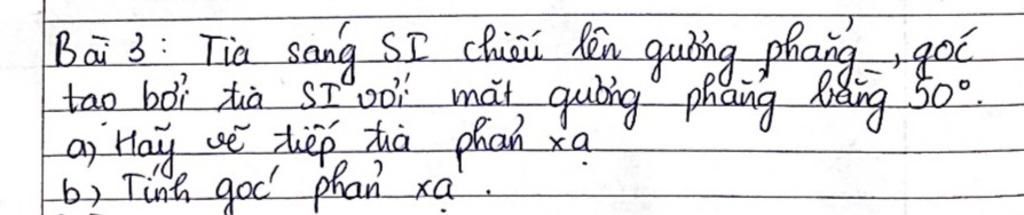 Bài 3: Tia sáng SI chiếu lên gường phẳng, góc
tạo bởi tia SI với mặt gường phẳng bằng 50°.
a) Hãy vẽ tiếp tia phản xạ
b) Tính góc phản xạ.